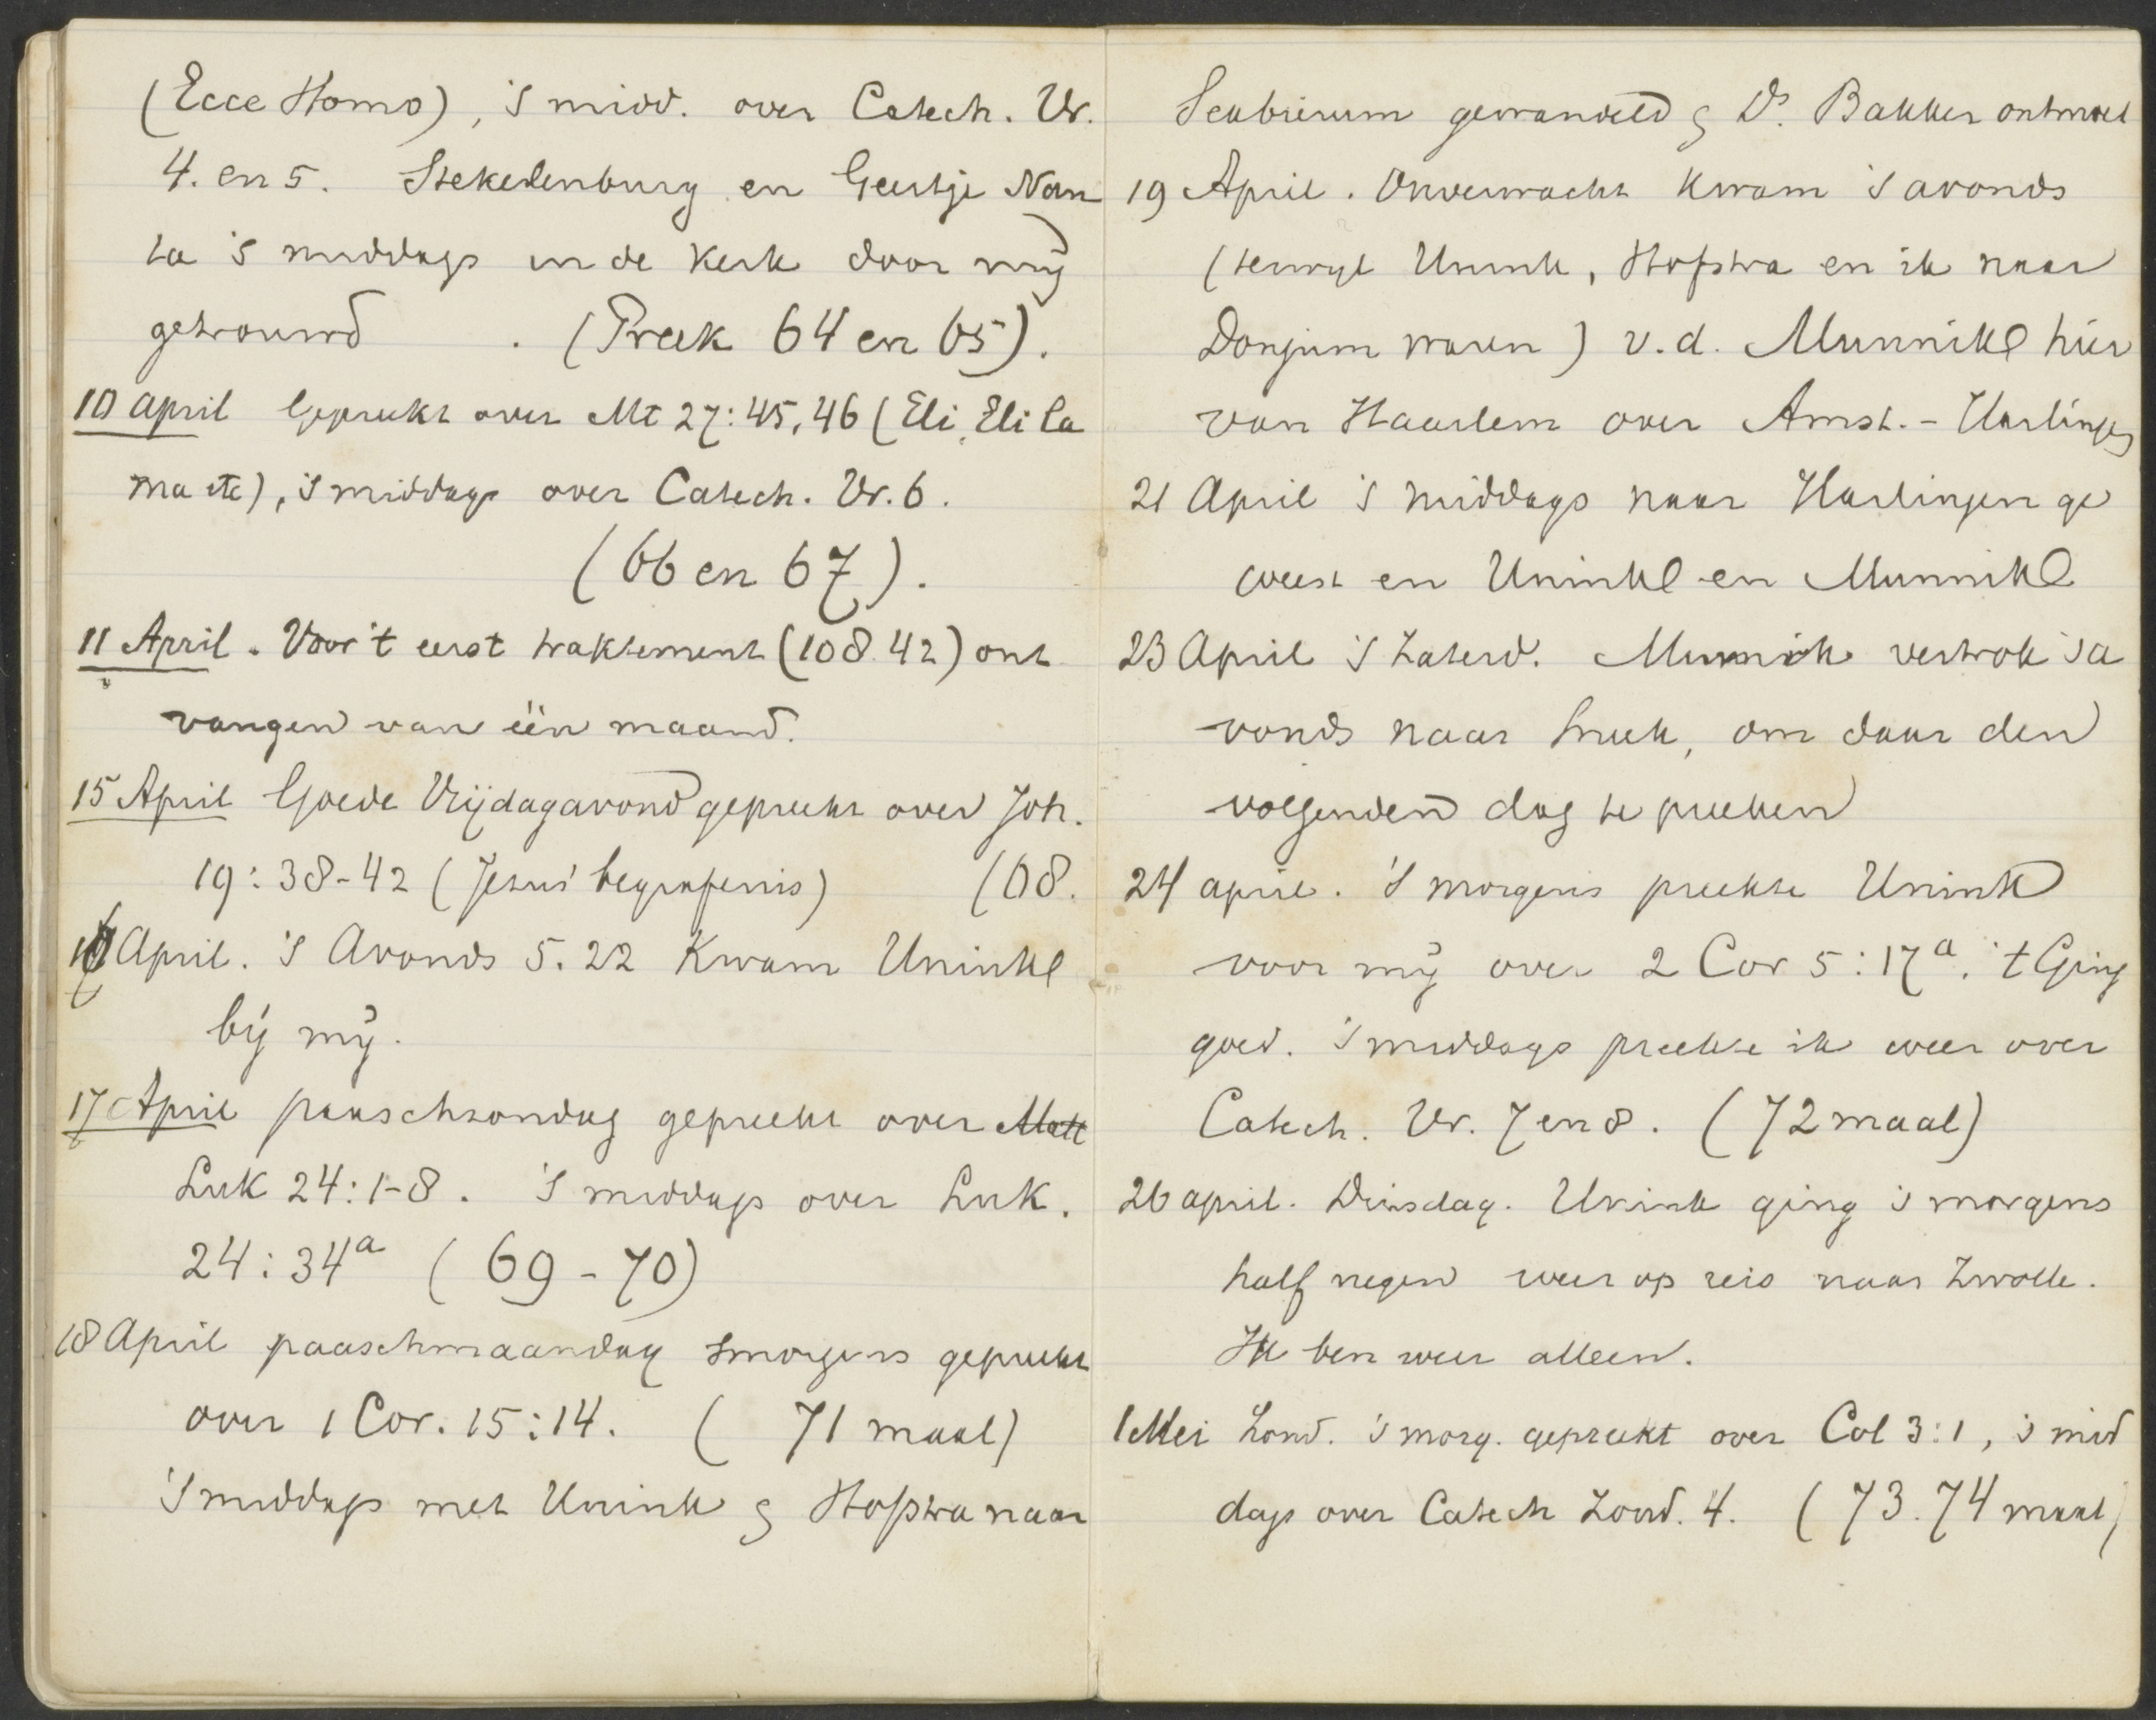 (Ecce Homo), 's midd. over Catech. Vr.
4. en 5. Stekelenburg en Geertje Nan
ta 's middags in de Kerk door mij
getrouwd . (Preek 64 en 65).
10 april Gepreekt over Mt 27:45,46 (Eli, Eli la
ma etc), 's middags over Catech. Vr. 6.
(66 en 67).
11 April. Voor 't eerst traktement (108.42) ont
vangen van één maand.
15 April Goede Vrijdagavond gepreekt over Joh.
19:38-42 (Jezus' begrafenis) (68.
April. 's Avonds 5.22 Kwam Unink
bij mij.
17 April paaschzondag gepreekt over Matt
Luk 24:1-8. 's middags over Luk.
24:34a (69-70)
18 April paaschmaandag smorgens gepreekt
over 1 Cor. 15:14. ( 71 maal)
's middags met Unink & Hofstra naar
Sexbierum gewandeld & Ds. Bakker ontmoet
19 April. Onverwacht kwam 's avonds
(terwijl Unink, Hofstra en ik naar
Donjum waren) v.d. Munnik hier
van Haarlem over Amst.-Harlingen
21 April 's middags naar Harlingen ge
weest en Unink en Munnik
23 April 's Zaterd. Munnik vertrok 'sa
vonds naar Sneek, om daar den
volgenden dag te preeken
24 april. 's morgens preekte Unink
voor mij over 2 Cor 5:17a. 't Ging
goed. 's middags preekte ik weer over
Catech. Vr. 7 en 8. (72 maal)
26 april. Dinsdag. Unink ging 's morgens
half negen weer op reis naar Zwolle.
Ik ben weer alleen.
1 Mei Zond. 's morg. gepreekt over Col 3:1, 's mid
dags over Catech Zond. 4. (73.74 maal)